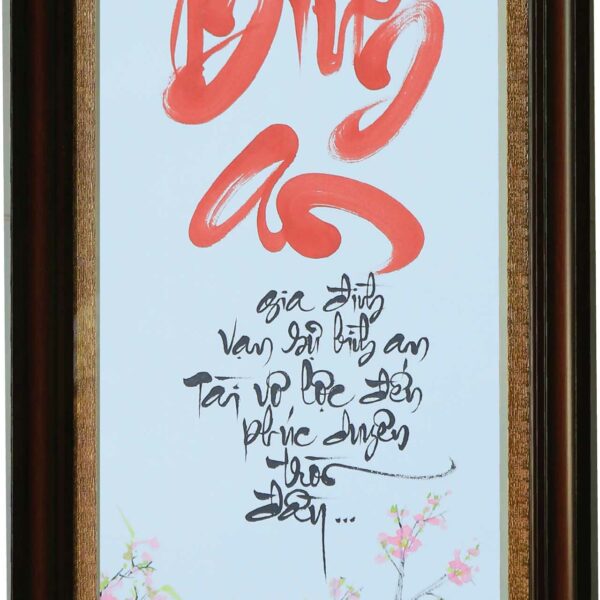 Bình
an
gia đình
vạn sự bình an
Tài vô lộc đến
phúc duyên
tròn
đầy...